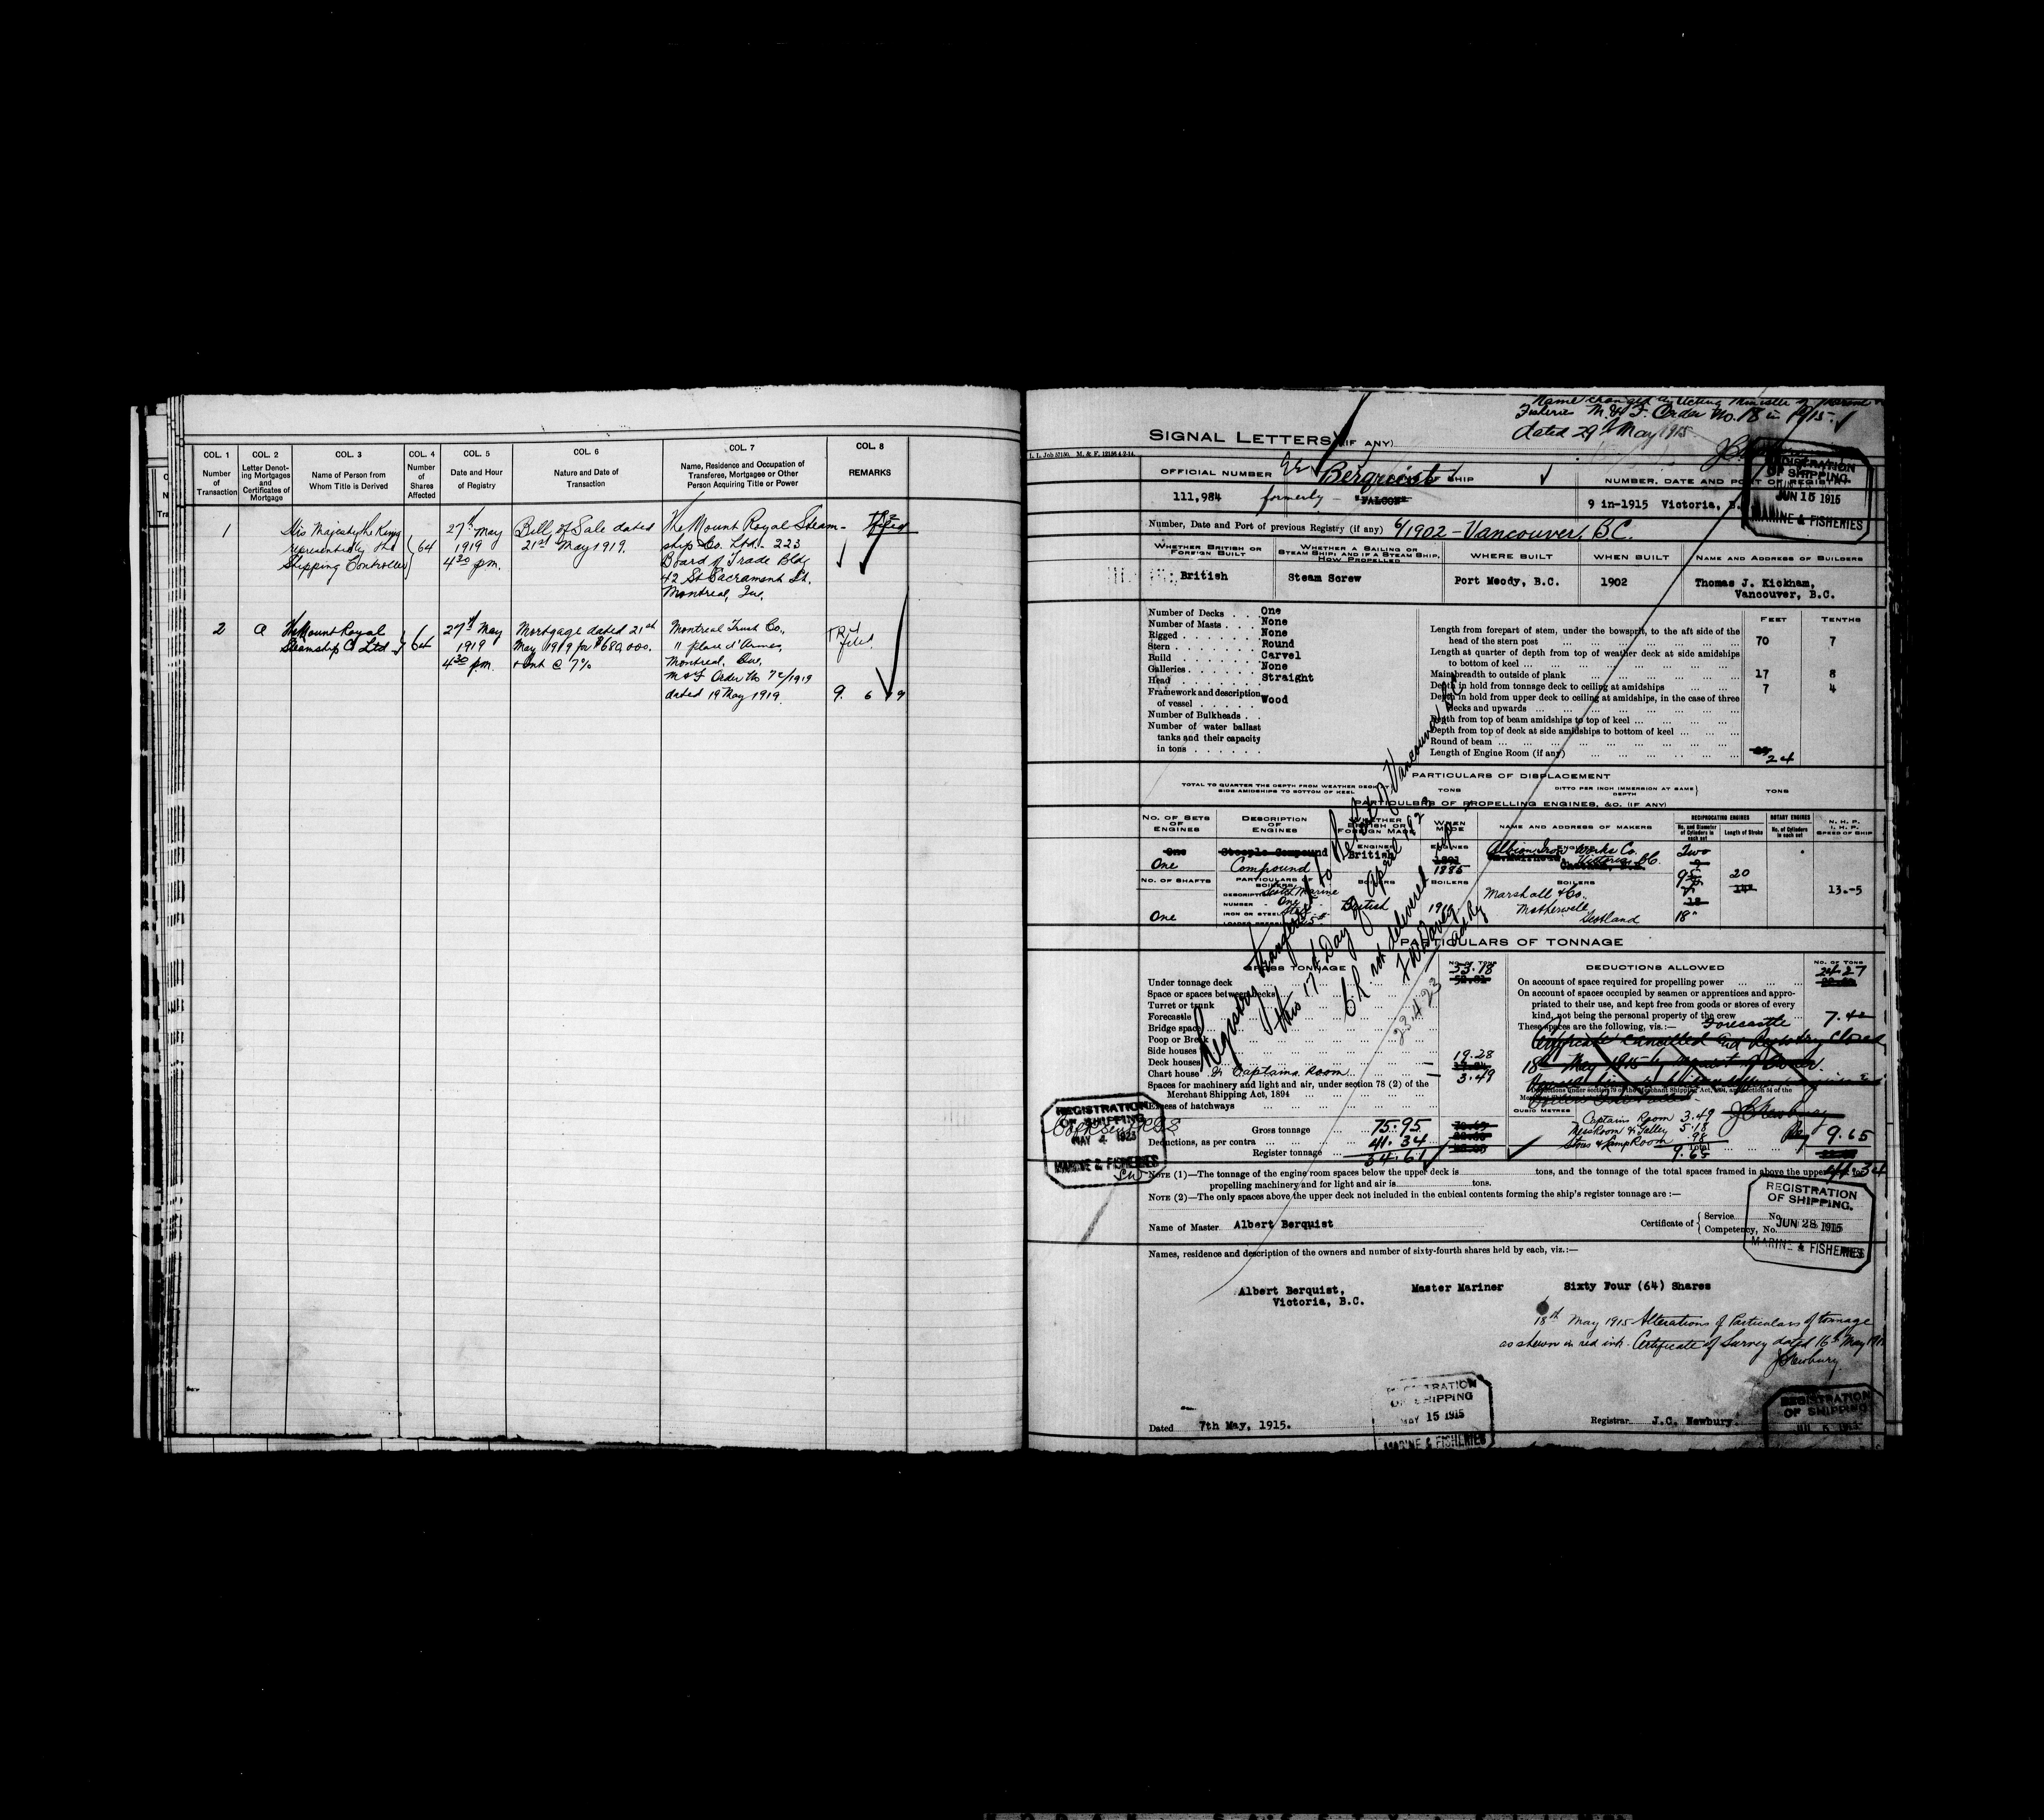 COL. 1 COL. 2 COL. 3 COL. 4 COL. 5 COL. 6 COL. 7 COL. 8
Number of Transaction
Letter Denoting Mortgages and Certificates of Mortgage
Name of Person from Whom Title is Derived
Number of Shares Affected
Date and Hour of Registry
Nature and Date of Transaction
Name, Residence and Occupation of Transferee, Mortgagee or Other Person Acquiring Title or Power
REMARKS
1 His Majesty the King 27th May Bill of Sale dated The Mount Royal Steam-
represented by the 64 1919 21st May 1919. ship Co. Ltd. - 223
Shipping Controller 4 30 pm. Board of Trade Bldg
42 St Sacrament St.
Montreal, Que.
2 A The Mount Royal 64 27th May Mortgage dated 21st Montreal Trust Co.,
Steamship Co Ltd 1919 May 1919 for $680,000. 11 place d'Armes,
4 30 pm. + Int @ 7% Montreal, Que.
M & F Order No 72/1919
dated 19 May 1919. 9. 6 19
Name changed by Acting Minister of Marine
Fisheries M. & F. Order No. 18 in 1915.
dated 29th May 1915
SIGNAL LETTERS (IF ANY)
I. I. Job 57150. M. & F. 12156 4-2-14.
OFFICIAL NUMBER
Berquist SHIP
NUMBER, DATE AND PORT OF REGISTRY
111,984 formerly - "FALCON" 9 in-1915 Victoria, B.
REGISTRATION
OF SHIPPING
JUN 15 1915
MARINE & FISHERIES
Number, Date and Port of previous Registry (if any) 6/1902 - Vancouver, B.C.
WHETHER BRITISH OR FOREIGN BUILT
WHETHER A SAILING OR STEAM SHIP; AND IF A STEAM SHIP, HOW PROPELLED
WHERE BUILT
WHEN BUILT
NAME AND ADDRESS OF BUILDERS
British Steam Screw Port Moody, B.C. 1902 Thomas J. Kickham,
Vancouver, B.C.
Number of Decks One
Number of Masts None
Rigged None
Stern Round
Build Carvel
Galleries None
Head Straight
Framework and description of vessel Wood
Number of Bulkheads
Number of water ballast
tanks and their capacity
in tons
FEET TENTHS
Length from forepart of stem, under the bowsprit, to the aft side of the
head of the stern post 70 7
Length at quarter of depth from top of weather deck at side amidships
to bottom of keel
Main breadth to outside of plank 17 8
Depth in hold from tonnage deck to ceiling at amidships 7 4
Depth in hold from upper deck to ceiling at amidships, in the case of three
decks and upwards
Depth from top of beam amidships to top of keel
Depth from top of deck at side amidships to bottom of keel
Round of beam
Length of Engine Room (if any) 24
PARTICULARS OF DISPLACEMENT
TOTAL TO QUARTER THE DEPTH FROM WEATHER DECK AT
SIDE AMIDSHIPS TO BOTTOM OF KEEL
TONS
DITTO PER INCH IMMERSION AT SAME
DEPTH
TONS
PARTICULARS OF PROPELLING ENGINES, &C. (IF ANY)
NO. OF SETS OF ENGINES
DESCRIPTION OF ENGINES
WHETHER BRITISH OR FOREIGN MADE
WHEN MADE
NAME AND ADDRESS OF MAKERS
RECIPROCATING ENGINES
No. and Diameter of Cylinders in each set
Length of Stroke
ROTARY ENGINES
No. of Cylinders in each set
N. H. P.
I. H. P.
SPEED OF SHIP
One Steeple Compound British 1891
One Compound 1886
Albion Iron Works Co.
Victoria B.C.
Two
20
13.-5
NO. OF SHAFTS
PARTICULARS OF BOILERS
BOILERS
Scotch Marine
NUMBER One
IRON OR STEEL Steel
British
One
Marshall & Co.
Motherwell
Scotland
18"
PARTICULARS OF TONNAGE
GROSS TONNAGE
NO. OF TONS
DEDUCTIONS ALLOWED
NO. OF TONS
Under tonnage deck 53.18
Space or spaces between decks
Turret or trunk
Forecastle
Bridge space
Poop or Break
Side houses
Deck houses 19.28
Chart house Or Captains Room 3.49
Spaces for machinery and light and air, under section 78 (2) of the
Merchant Shipping Act, 1894
Excess of hatchways
Gross tonnage 75.95
Deductions, as per contra 41.34
Register tonnage 34.61
On account of space required for propelling power 24.27
On account of spaces occupied by seamen or apprentices and appro-
priated to their use, and kept free from goods or stores of every
kind, not being the personal property of the crew 7.42
These spaces are the following, viz.:— Forecastle
Certificate Cancelled and Registry Closed
18th May 1915
CUBIC METRES
Captains Room 3.49
Messroom & Galley 5.18
Stores & Lamp Room .98
9.65
Total
9.65
41.34
Registry transferred to the Port of Vancouver
this 17th Day of April 192
CR not delivered up
23.4.23
REGISTRATION
OF SHIPPING
MAY 4 1923
MARINE & FISHERIES
NOTE (1)—The tonnage of the engine room spaces below the upper deck is tons, and the tonnage of the total spaces framed in above the upper deck for
propelling machinery and for light and air is tons.
NOTE (2)—The only spaces above the upper deck not included in the cubical contents forming the ship's register tonnage are :—
REGISTRATION
OF SHIPPING.
JUN 28 1915
MARINE & FISHERIES
Name of Master Albert Berquist
Certificate of
Service No.
Competency, No.
Names, residence and description of the owners and number of sixty-fourth shares held by each, viz.:—
Albert Berquist, Master Mariner Sixty Four (64) Shares
Victoria, B.C.
18th May 1915 Alterations of Particulars of tonnage
as shewn in red ink. Certificate of Survey dated 16th May
J Newbury
REGISTRATION
OF SHIPPING
MAY 15 1915
MARINE & FISHERIES
Dated 7th May, 1915.
Registrar J.C. Newbury.
REGISTRATION
OF SHIPPING